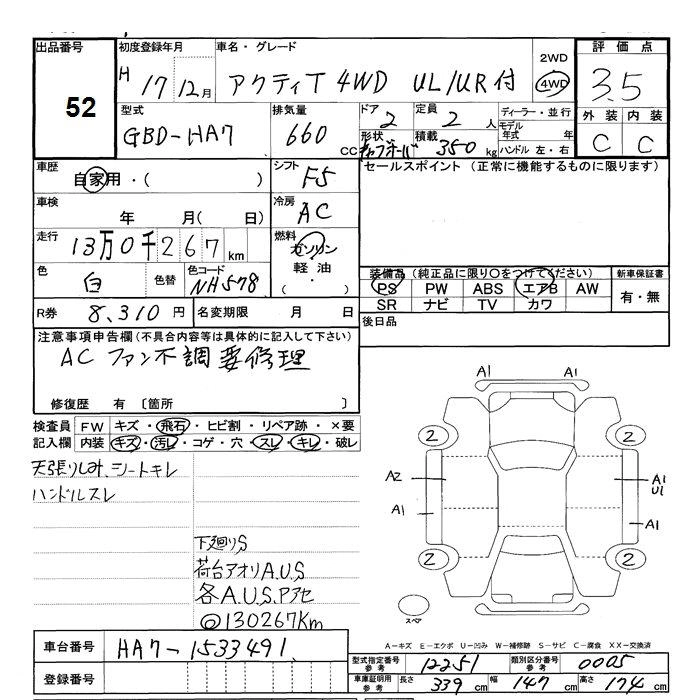 出品番号 初度登録年月 車名・グレード 2WD 4WD 評価点
52
H 17年 12月 アクティT 4WD UL/UR付 3.5
型式 排気量 ドア 定員 ディーラー・並行 外装 内装
GBD-HA7 660 CC 2 2 人 モデル年式 年 C C
形状 積載 350 kg ハンドル 左・右
車歴 自家用・( ) シフト F5 セールスポイント(正常に機能するものに限ります)
車検 年 月(日) 冷房 AC
走行 13万0千267km 燃料 ガソリン 軽油 ( ・ )
色 白 色替 色コード NH578 装備品(純正品に限り○をつけてください) 新車保証書
PS PW ABS エアB AW 有・無
SR ナビ TV カワ
R券 8,310円 名変期限 月 日 後日品
注意事項申告欄(不具合内容等は具体的に記入して下さい)
ACファン不調要修理
修復歴 有 〔箇所 〕
検査員 FW キズ・飛石・ヒビ割・リペア跡・×要
記入欄 内装 キズ・汚レ・コゲ・穴・スレ・キレ・破レ
天張りしみ、シートキレ
ハンドルスレ
下廻りS
荷台アオリA.U.S
各A.U.S.Pアセ
@130267Km
A1 A1
2 2
A2 A1 U1
A1 A1
2 2
スペア
A-キズ E-エクボ U-凹み W-補修跡 S-サビ C-腐食 XX-交換済
車台番号 HA7-1533491
登録番号
型式指定番号 参考 12251 類別区分番号 参考 0005
車庫証明用 参考 長さ 339cm 幅 147cm 高さ 174cm